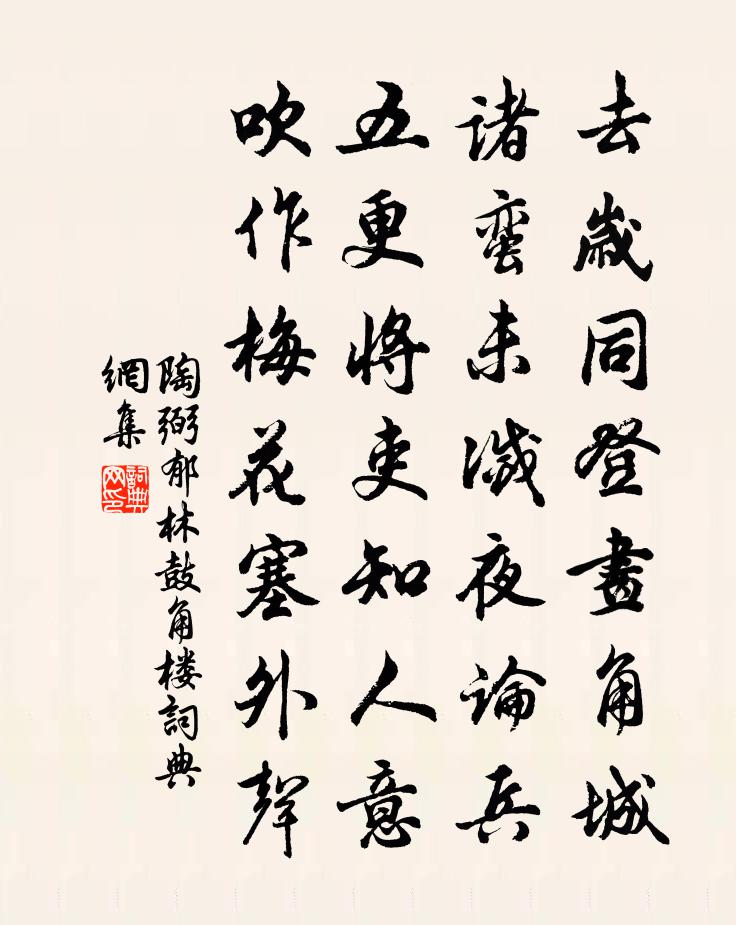 去歲同登畫角城
諸蛮未滅夜論兵
五更將吏知人意
吹作梅花塞外聲
陶弼郁林鼓角楼詞典
網集
詞典网印